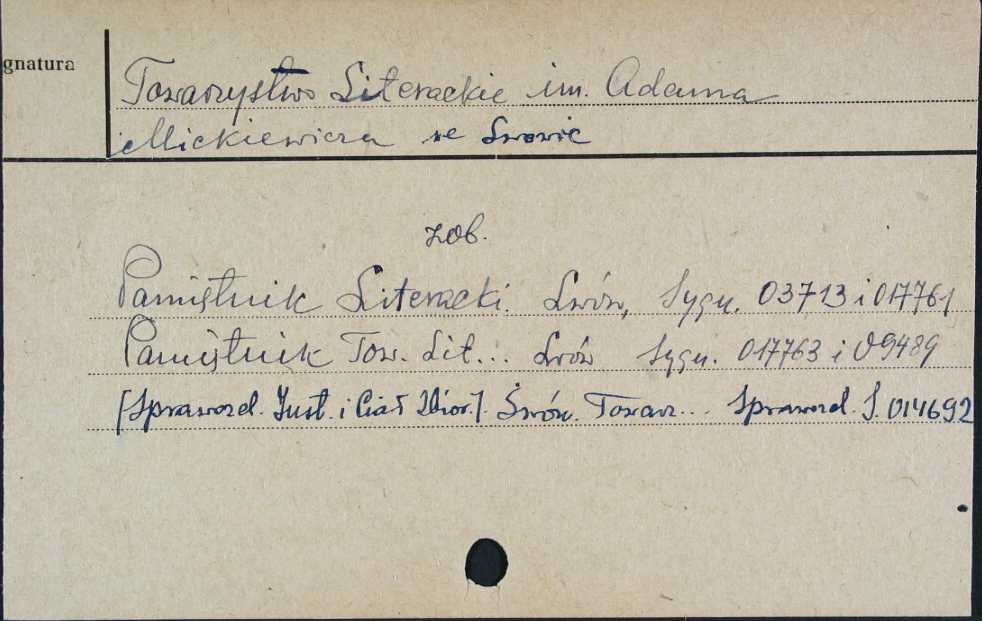 gnatura
Towarzystwo Literackie im. Adama
Mickiewicza we Lwowie
zob.
Pamiętnik Literacki. Lwów, Sygn. 03713 i 017761
Pamiętnik Tow. Lit... Lwów Sygn. 017763 i 09489
[Sprawozd. Inst. i Ciał Zbior.]. Lwów. Towarz... Sprawozd. S. 014692